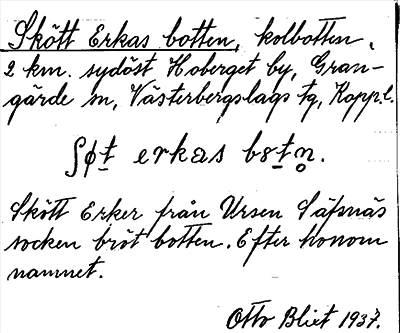 Skött Erkas botten, kolbotten,
2 km. sydöst Hoberget by, Gran-
gärde sn, Västerbergslags tg, Kopp.l.
ʃɸt erkas b8tn.
Skött Erker från Ursen Säfsnäs
socken bröt botten. Efter honom
namnet.
Otto Blixt 1937.